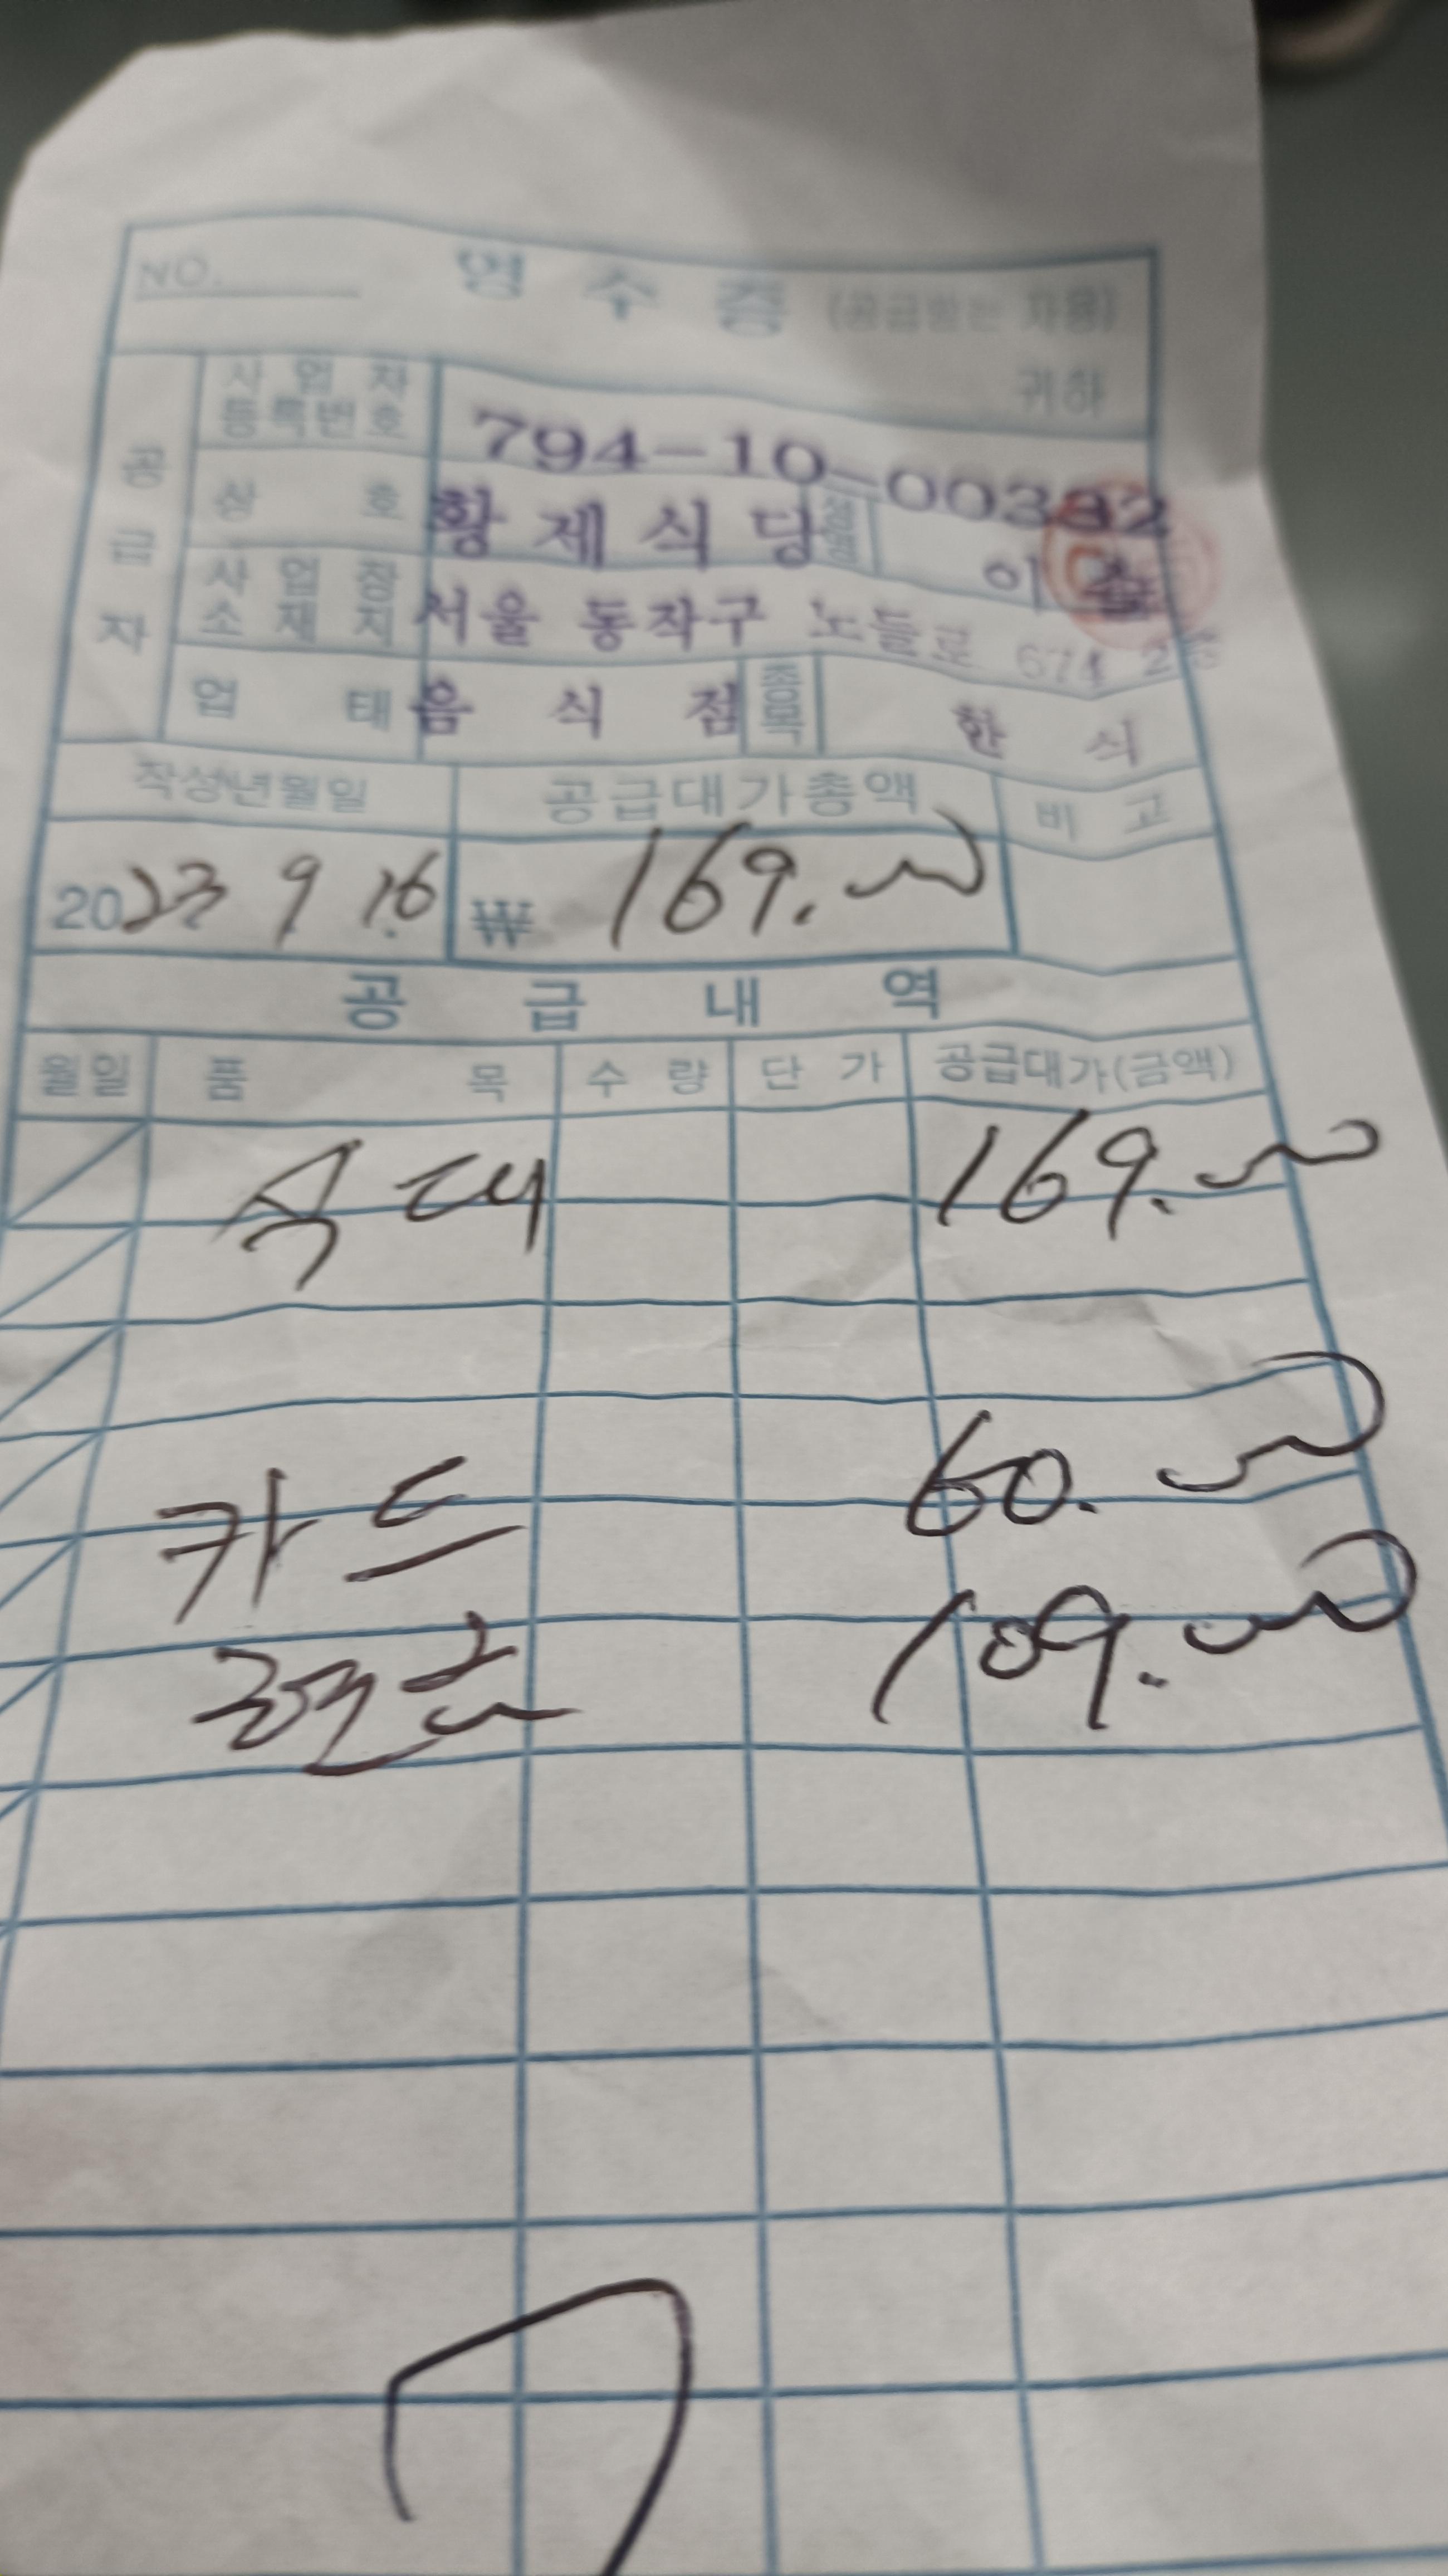 NO. 영수증 (공급받는 자용)
귀하
공급자
사업자등록번호 794-10-00382
상호 황제식당 성명 이
사업장소재지 서울 동작구 노들로 674
업태 음식점 종목 한식
작성년월일 공급대가총액 비고
2023 9. 16 ₩ 169.000
공급내역
월일 품목 수량 단가 공급대가(금액)
식대 169.000
카드 60.000
현금 109.000